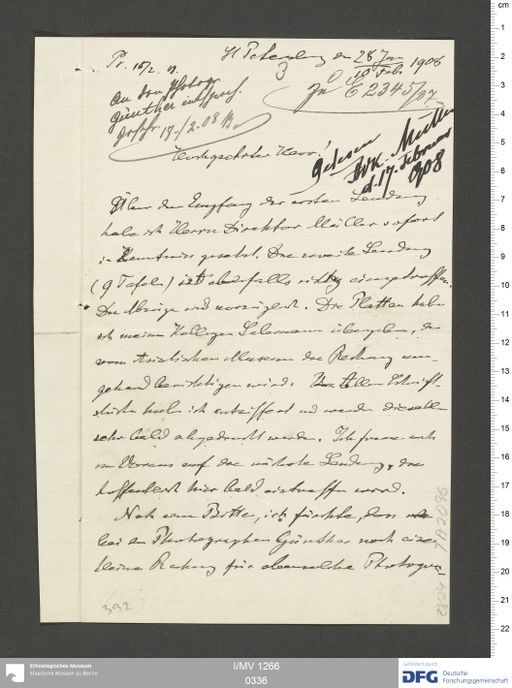 Pr. 15/2. 08.
St Petersburg den 28 Jan / 10 Febr 1908
An den Photogr.
Günther entspr.
geschr. 18./2. 08
3
Zu E 2345/07
gelesen
F.W.K. Müller
d. 17. Februar
908
Hochgeehrter Herr!
Über den Empfang der ersten Sendung
habe ich Herrn Direktor Müller sofort
in Kenntnis gesetzt. Die zweite Sendung
(9 Tafeln) ist ebenfalls richtig eingetroffen.
Die Abzüge sind vorzüglich. Die Platten habe
ich meinem Kollegen Salemann übergeben, der
vom Asiatischen Museum die Rechnung um-
gehend berichtigen wird. Alle Schrift-
stücke habe ich entziffert und werden dieselben
sehr bald abgedruckt werden. Ich freue mich
im Voraus auf die nächste Sendung, die
hoffentlich hier bald eintreffen wird.
Noch eine Bitte, ich fürchte, dass
bei dem Photographen Günther noch eine
kleine Rechnung für dieselbe Photogra-
392
I/MV 1266
0336
Ethnologisches Museum
Staatliche Museen zu Berlin
Gefördert durch
DFG
Deutsche
Forschungsgemeinschaft
cm
1
2
3
4
5
6
7
8
9
10
11
12
13
14
15
16
17
18
19
20
21
22